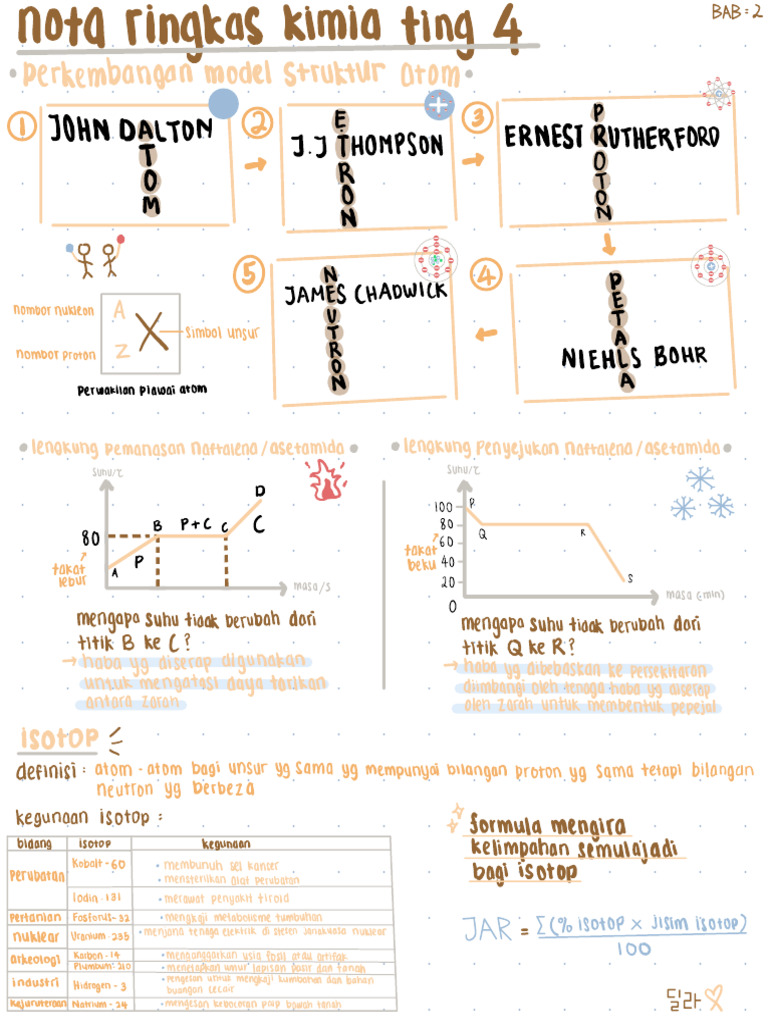 nota ringkas kimia ting 4
BAB = 2
perkembangan model struktur atom
1
JOHN DALTON
ATOM
2
J.J THOMPSON
E.TRON
3
ERNEST RUTHERFORD
PROTON
4
NIEHLS BOHR
PETALA
5
JAMES CHADWICK
NEUTRON
nombor nukleon
A
X
simbol unsur
nombor proton
Z
Perwakilan piawai atom
lengkung pemanasan naftalena/asetamida
suhu/°C
D
B
P+C
C
C
80
P
takat
lebur
A
masa/s
mengapa suhu tidak berubah dari
titik B ke C?
→ haba yg diserap digunakan
untuk mengatasi daya tarikan
antara zarah
lengkung penyejukan naftalena/asetamida
suhu/°C
100
P
80
Q
R
60
takat
beku
40
20
S
0
masa (min)
mengapa suhu tidak berubah dari
titik Q ke R?
→ haba yg dibebaskan ke persekitaran
diimbangi oleh tenaga haba yg diserap
oleh zarah untuk membentuk pepejal
isotop
definisi : atom-atom bagi unsur yg sama yg mempunyai bilangan proton yg sama tetapi bilangan
neutron yg berbeza
kegunaan isotop :
bidang isotop kegunaan
perubatan Kobalt-60 • membunuh sel kanser
• mensterilkan alat perubatan
Iodin-131 • merawat penyakit tiroid
pertanian Fosforus-32 • mengkaji metabolisme tumbuhan
nuklear Uranium-235 • menjana tenaga elektrik di stesen janakuasa nuklear
arkeologi Karbon-14 • menganggarkan usia fosil atau artifak
Plumbum-210 • menetapkan umur lapisan pasir dan tanah
industri Hidrogen-3 • pengesan untuk mengkaji kumbahan dan bahan
buangan cecair
kejuruteraan Natrium-24 • mengesan kebocoran paip bawah tanah
formula mengira
kelimpahan semulajadi
bagi isotop
JAR = Σ(% isotop × jisim isotop)
100
딜라